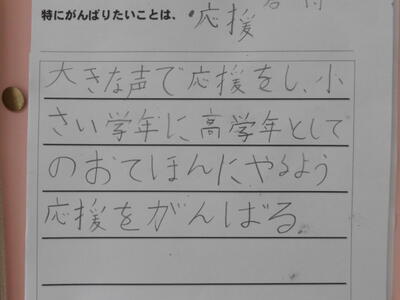 特にがんばりたいことは、
・応援
大きな声で応援をし、小
さい学年に高学年として
のおてほんにやるよう
応援をがんばる。